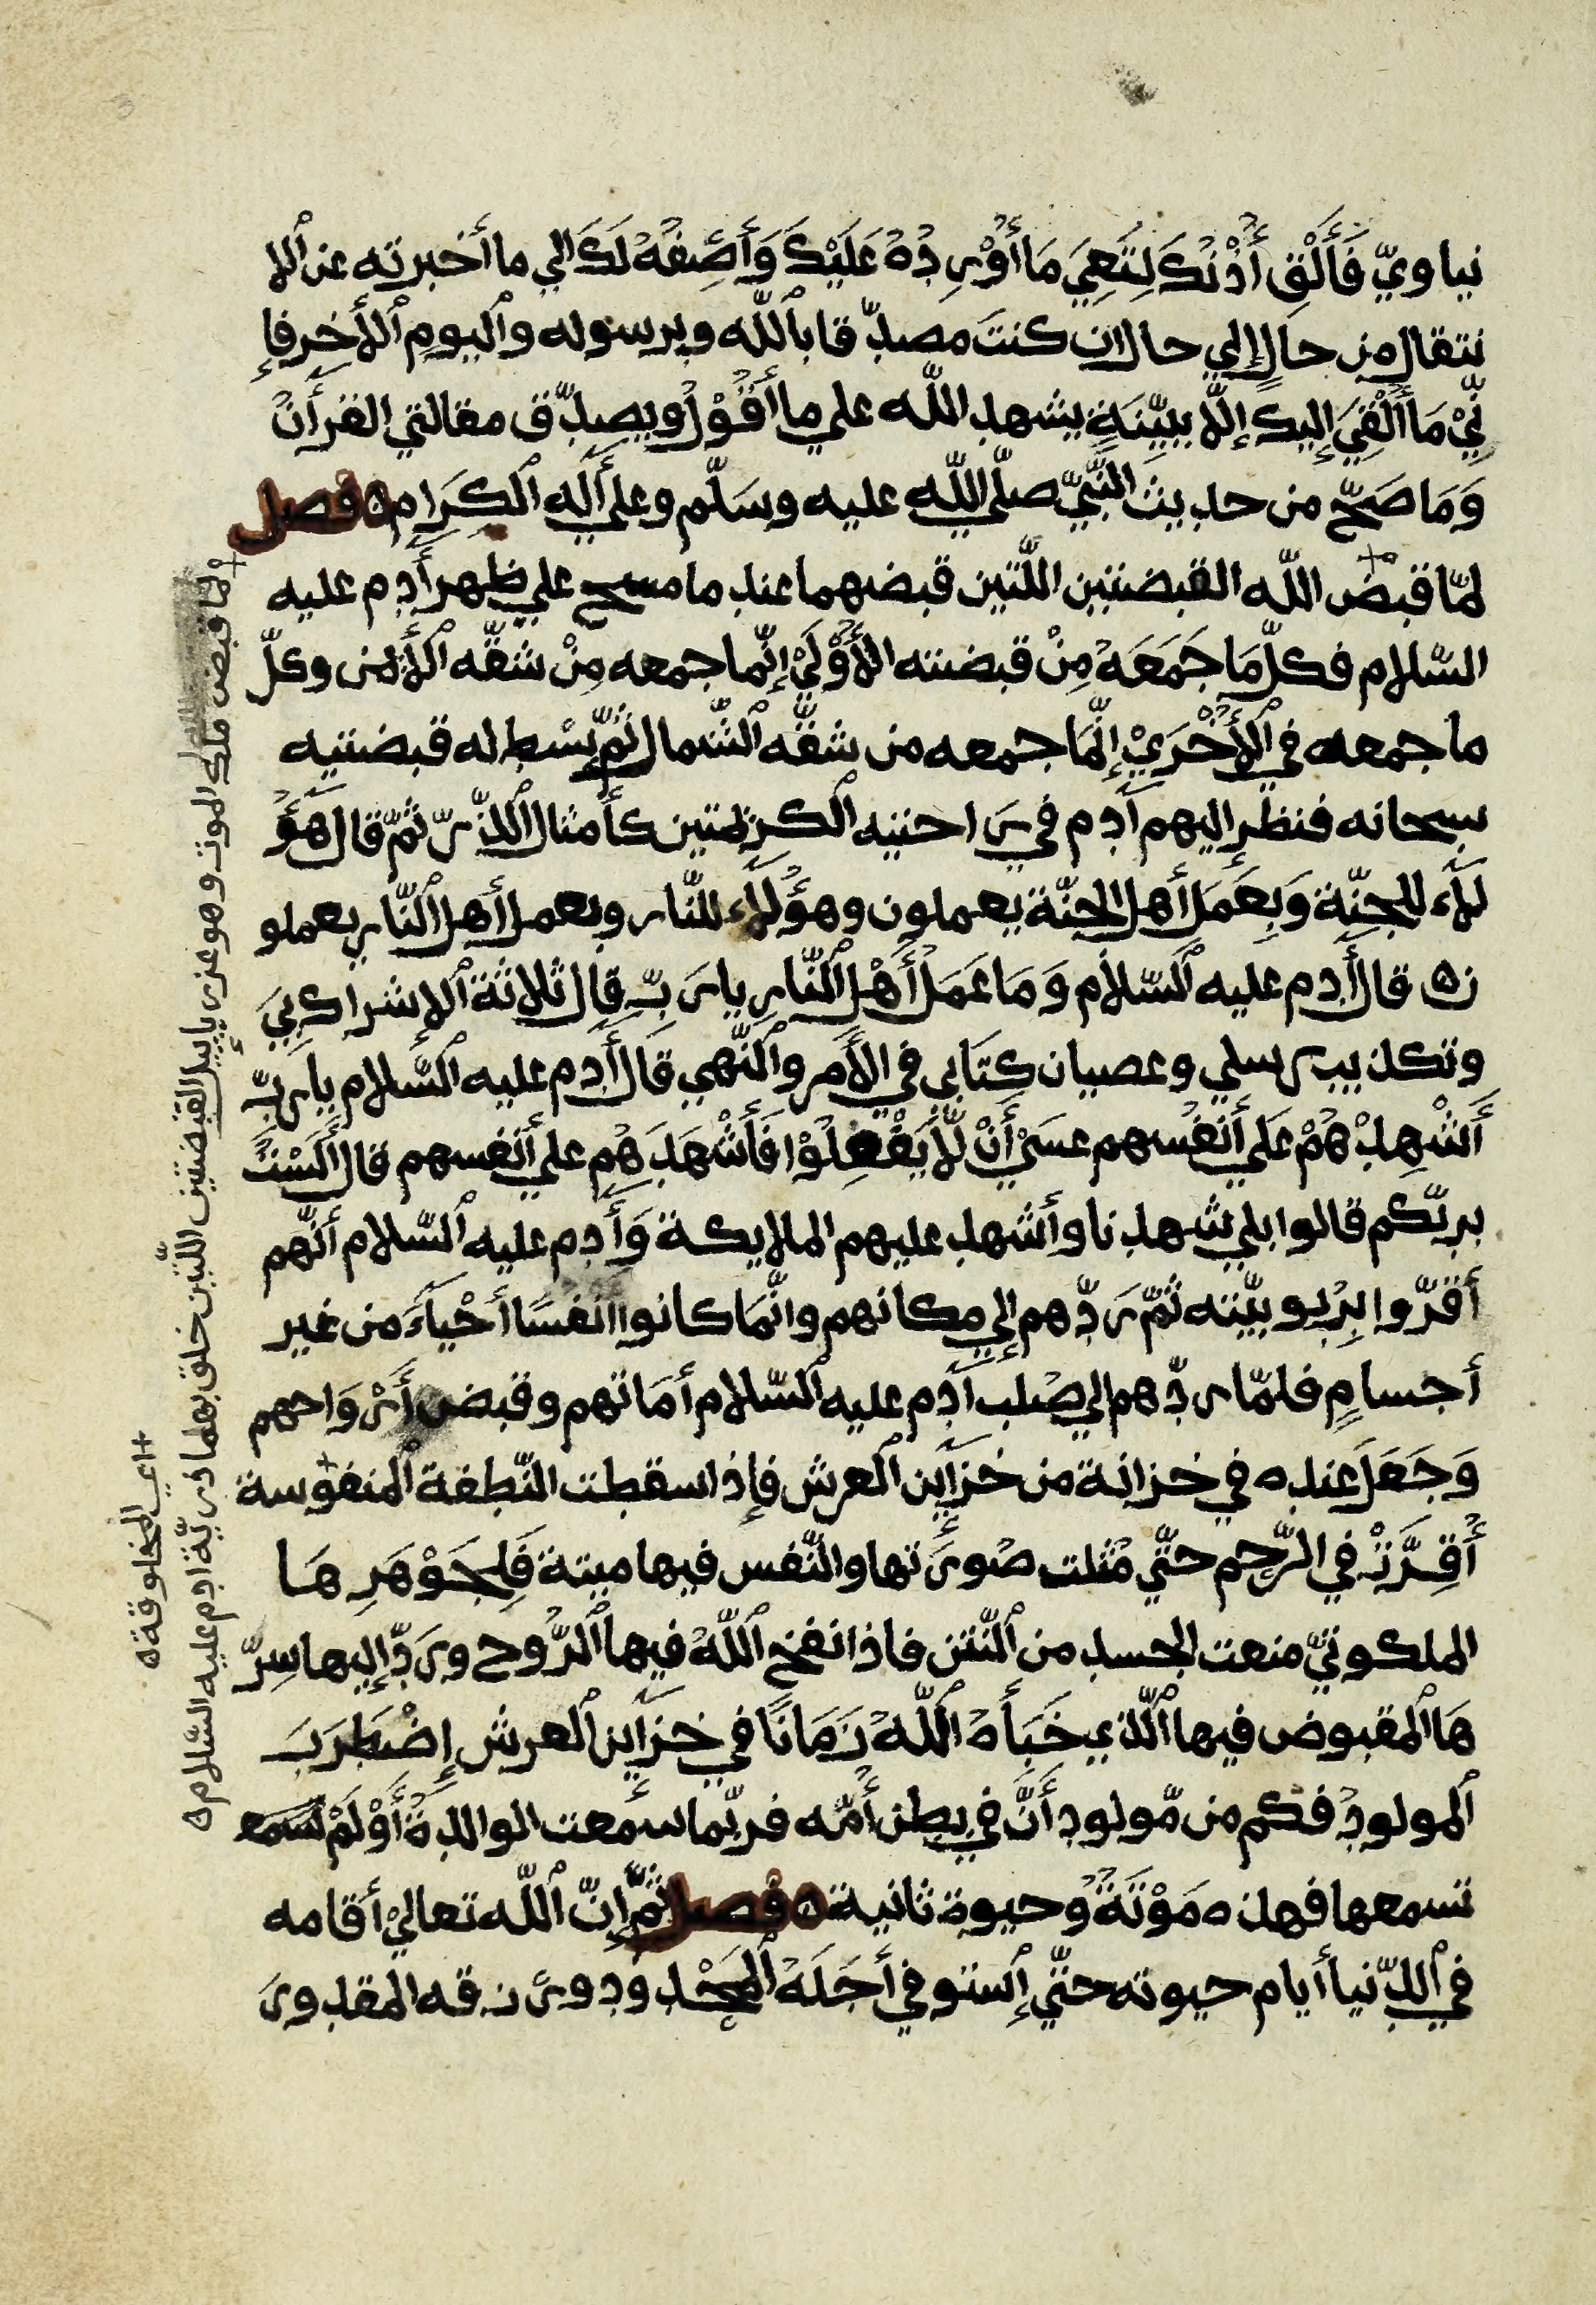 نياويّ فَأَلْقِ أُذْنُكَ لِتَعِيَ مَا أُوْرِدُهُ عَلَيْكَ وَأَصِفُهُ لَكَ الي ما أخبرته عن ٱلا
نتقال من حالٍ إلي حال ان كنتَ مصدّقا بٱللّه وبرسوله وٱليوم ٱلأخر فإ
نِّيْ مَا أُلْقِيَ إليكَ إلّا ببيّنَةٍ يشهد اللّه علي ما أَقُوْلُ ويصدّق مقالتي القرأنُ
وَمَا صَحَّ من حديث النّبيّ صلّي اللّه عليه وسَلّم وعلي أٓله ٱلكرَامِ ه فصل
لمّا قبضَ اللّه القبضتين اللّتين قبضهما عند ما مسح علي ظهر أٓدم عليه
السّلام فكلّ مَا جَمَعَهُ مِنْ قبضته الأُوْلَيْ إنّما جمعه مِنْ شقّه ٱلأيمن وكلّ
ما جمعه في ٱلأُخْرَيْ إنَّمَا جمعه من شقّه ٱلشّمال ثُمّ بسْط له قبضتيه
سبحانه فنظر إليهم آدم في راحتيه ٱلكريمتين كأمثال ٱلذّرّ ثمّ قال هَؤُ
لآء للجنّة وَبِعَمَل أهل الجنّة يعملون وهؤُلآء للنّار وبعمل أهل ٱلنّار يعملو
ن ه قال أٓدم عليه ٱلسّلام وَمَا عَمَلُ أَهْل ٱلنّار يا رَبِّ قال ثلاثة ٱلإشراك بِيَ
وتكذيب رسلي وعصيان كِتَابي في الأَمر وٱلنّهي قَال أٓدم عليه ٱلسّلام يا ربّ
أَشْهِدْ هُمْ عَلَي أَنفُسهم عسَيْ أَنْ لَّا يَفْعِلُوْا فَأَشْهَدَهُم علي أنفسهم قال أَلَسْتُ
بربّكم قالوا بلي شهدنا وأشهد عليهم الملايكة وَأٓدم عليه ٱلسّلام أنّهم
أقرّوا بِرُبوبيّته ثمّ ردّهم إلي مكانهم وانّمَا كانوا انفسًا أَحْيآءَ من غير
أجسامٍ فلمّا ردّهم الي صُلب آدم عليه ٱلسّلام أماتهم وقبض أَرْوَاحهم
وَجَعَلَ عنده في خزانة من خزآين ٱلعرش فإذا سقطت النّطفة ٱلمنفوسة
أُقِرَّتْ في الرّحِم حتّي مُثّلت صُورَتها والنّفس فيها ميتة فَلِجَوْهَرِهَا
الملكوتيّ منعت الجسد من ٱلنّتن فاذا نفخ ٱللّهُ فيها ٱلرّوح وردّ إليها سِرّ
هَا ٱلمقبوض فيها ٱلّذي خَبَأَهُ ٱللّهُ زَمَانًا في خزآين ٱلعرش إضْطَرَبَ
ٱلمولودُ فكم من مّولود أَنَّ في بطن أُمّه فربّما سمعت الوالدةُ أَوْ لَمْ تَسمع
تسمعها فهذه مَوْتَةٌ وحيوة ثانية ه فصل ثمّ إنّ ٱللّه تعاليْ أقامه
في ٱلدّنيا أيام حيوته حتّي إستوفي أَجَلَهُ ٱلمحْدود ورزقه المقدور
+ لما قبض ملك الموت وهو عزريآييل القبضتين اللّتين خلق بهما ذريّة ادم عليه السّلام ه
+ اي المخلوقة ه